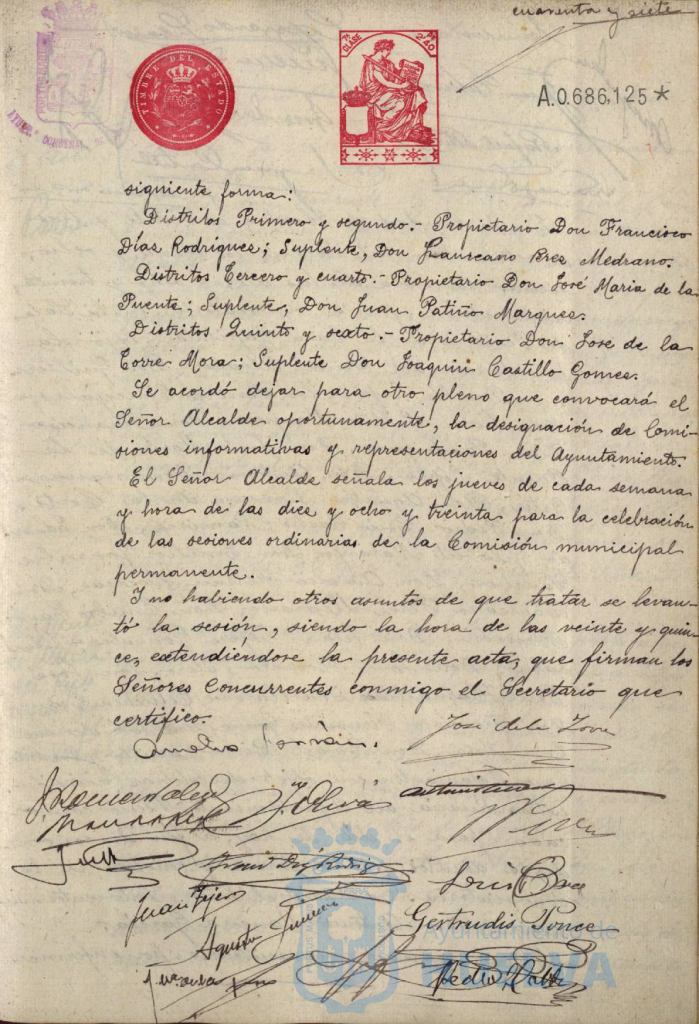 cuarenta y siete
TIMBRE DEL ESTADO
7ª CLASE
2'40
A.0.686,125*
siguiente forma:
Distritos Primero y segundo.- Propietario Don Francisco
Díaz Rodriguez; Suplente, Don Laureano Brez Medrano.
Distritos Tercero y cuarto.- Propietario Don José Maria de la
Puente; Suplente, Don Juan Patiño Marquez.
Distritos Quinto y sexto.- Propietario Don Jose de la
Torre Mora; Suplente Don Joaquin Castillo Gomez.
Se acordó dejar para otro pleno que convocará el
Señor Alcalde oportunamente, la designación de Comi-
siones informativas y representaciones del Ayuntamiento.
El Señor Alcalde señala los jueves de cada semana
y hora de las diez y ocho y treinta para la celebración
de las sesiones ordinarias de la Comisión municipal
permanente.
Y no habiendo otros asuntos de que tratar se levan-
tó la sesión, siendo la hora de las veinte y quin-
ce, extendiéndose la presente acta, que firman los
Señores Concurrentes conmigo el Secretario que
certifico.
José de la Torre
J. Oliva
Juan Tejero
Agustin Jimenez
Gertrudis Ponce
Pedro
Ayuntamiento de
HUELVA